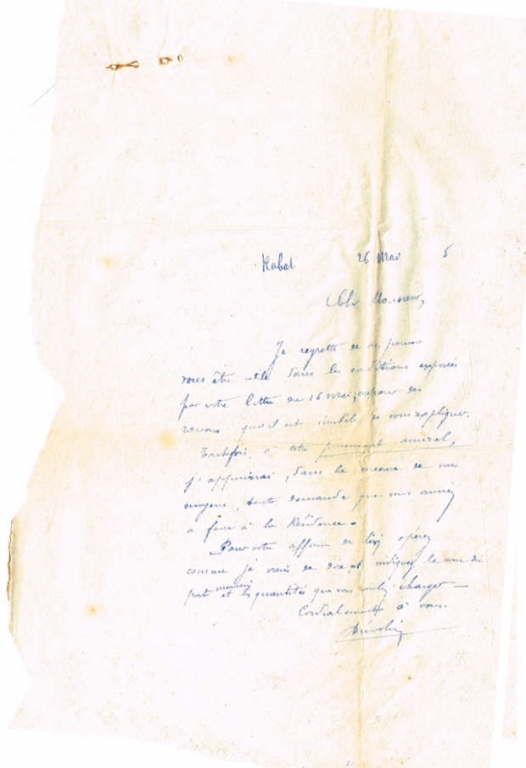 Rabat 26 Mai 5
Cher Monsieur,
Je regrette de ne pouvoir
vous être utile dans les conditions exposées
par votre lettre du 15 mai, pour des
raisons qu'il est inutile de vous expliquer.
Toutefois, à titre purement amical,
j'appuierai, dans la mesure de mes
moyens, toute demande que vous auriez
à faire à la Résidence.
Pour votre affaire de opérez
comme je viens de dire, et indiquez le nom du
port marocain et les quantités que vous voulez charger —
Cordialement à vous.